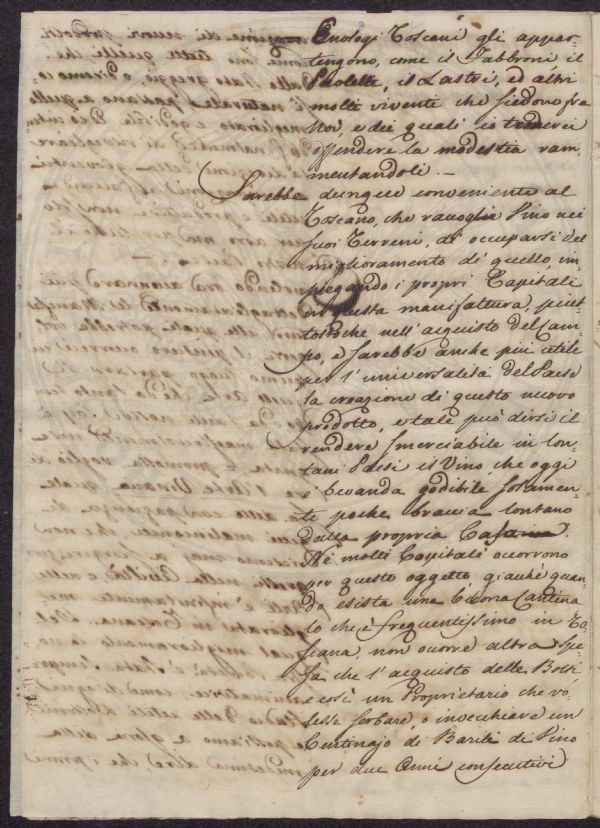 Enologi Toscani gli appar-
tengono, come il Fabbroni il
Paoletti, il Lastri, ed altri
molti viventi che siedono fra
Noi, e dei quali io temerei
offendere la modestia ram-
mentandoli. —
Sarebbe dunque conveniente al
Toscano, che raccoglie Vino nei
suoi Terreni, di occuparsi del
miglioramento di quello, im-
piegando i propri Capitali
in questa manifattura, piut-
tostochè nell'acquisto del Cam-
po, e sarebbe anche più utile
per l'universalità del Paese
la creazione di questo nuovo
prodotto, e tale può dirsi il
rendere smerciabile in lon-
tani Paesi il Vino, che oggi
è bevanda godibile solamen-
te poche braccia lontano
dalla propria Cantina.
Nè molti Capitali occorrono
per questo oggetto, giacchè quan-
do esista una buona Cantina
lo che è frequentissimo in To-
scana, non occorre altra spe-
sa che l'acquisto delle Botti
e così un Proprietario che vo-
lesse serbare, o invecchiare un
Centinajo di Barili di Vino
per due Anni consecutivi